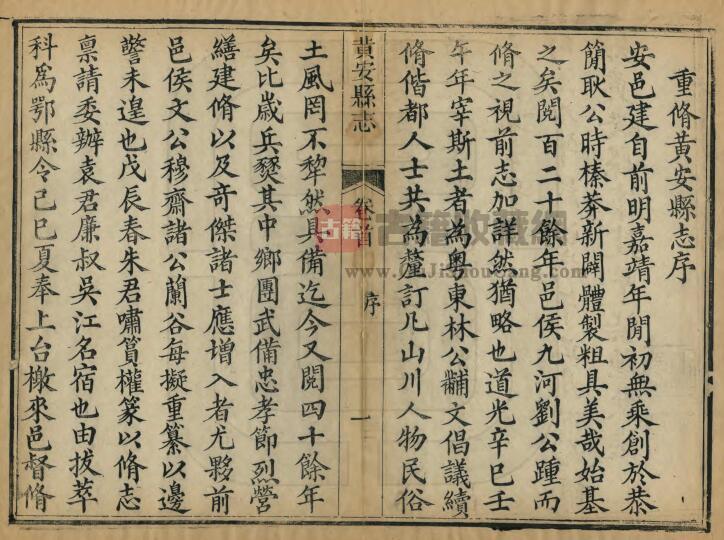 重脩黃安縣志序
安邑建自前明嘉靖年閒初無乘創於恭
簡耿公時榛莽新闢體製粗具美哉始基
之矣閱百二十餘年邑侯九河劉公踵而
脩之視前志加詳然猶略也道光辛巳壬
午年宰斯土者為粵東林公黼文倡議續
脩偕都人士共為釐訂凡山川人物民俗
黃安縣志
卷首
序
一
土風罔不犂然具備迄今又閱四十餘年
矣比歲兵燹其中鄉團武備忠孝節烈營
繕建脩以及奇傑諸士應增入者尤夥前
邑侯文公穆齋諸公蘭谷每擬重纂以邊
警未遑也戊辰春朱君嘯筼權篆以脩志
禀請委辦袁君廉叔吳江名宿也由拔萃
科為鄂縣令己巳夏奉上台檄來邑督脩
古籍
古籍收藏網
www.GuJiShouCang.com